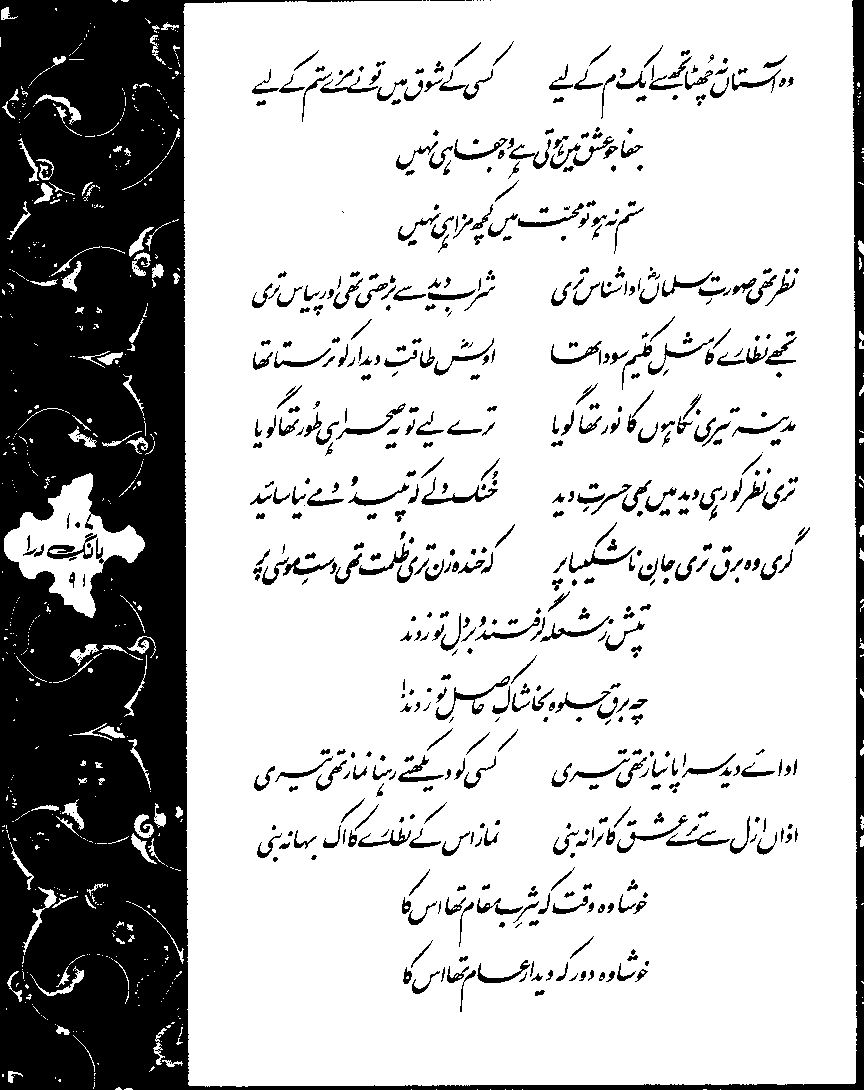 وہ آستاں نہ چُھٹا تجھ سے ایک دم کے لیے     کسی کے شوق میں تو نے مزے ستم کے لیے
جفا جو عشق میں ہوتی ہے وہ جفا ہی نہیں
ستم نہ ہو تو محبّت میں کچھ مزا ہی نہیں
نظر تھی صورتِ سلماںؓ ادا شناس تری     شرابِ دید سے بڑھتی تھی اور پیاس تری
تجھے نظارے کا مثلِ کلیم سودا تھا     اویسؓ طاقتِ دیدار کو ترستا تھا
مدینہ تیری نگاہوں کا نور تھا گویا     ترے لیے تو یہ صحرا ہی طُور تھا گویا
تری نظر کو رہی دید میں بھی حسرتِ دید     خُنک دلے کہ تپید و دمے نیاسائید
گری وہ برق تری جانِ ناشکیبا پر     کہ خندہ زن تری ظُلمت تھی دستِ موسٰی پر
تپش ز شعلہ گرفتند و بر دلِ تو زدند
چہ برقِ جلوہ بخاشاکِ حاصلِ تو زدند!
ادائے دید سراپا نیاز تھی تیری     کسی کو دیکھتے رہنا نماز تھی تیری
اذاں ازل سے ترے عشق کا ترانہ بنی     نماز اس کے نظارے کا اک بہانہ بنی
خوشا وہ وقت کہ یثرب مقام تھا اس کا
خوشا وہ دور کہ دیدار عام تھا اس کا
۱۰۷
بانگِ درا
۹۱